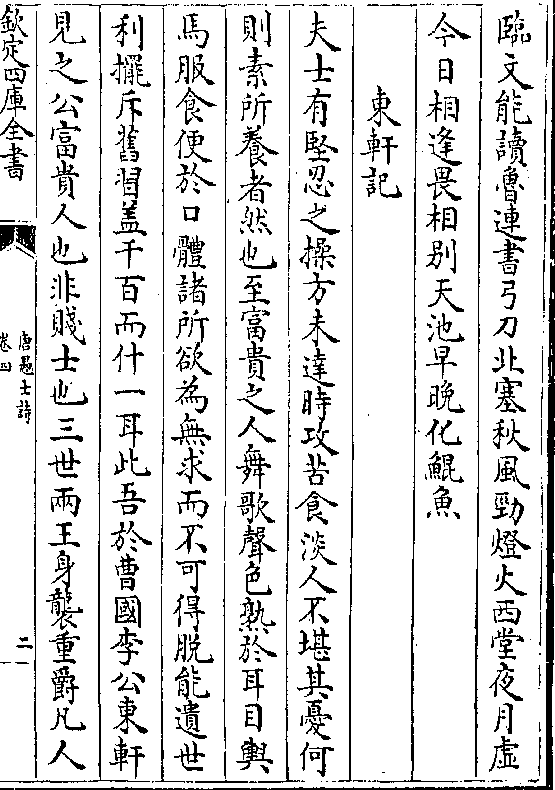 臨文能讀魯連書弓刀北塞秋風勁燈火西堂夜月虛
今日相逢畏相别天池早晚化鯤魚
東軒記
夫士有堅忍之操方未達時攻苦食淡人不堪其憂何
則素所養者然也至富貴之人舞歌聲色熟於耳目輿
馬服食便於口體諸所欲為無求而不可得脱能遺世
利擺斥舊習盖千百而什一耳此吾於曹國李公東軒
見之公富貴人也非賤士也三世兩王身襲重爵凡人
欽定四庫全書
唐愚士詩
卷四
二